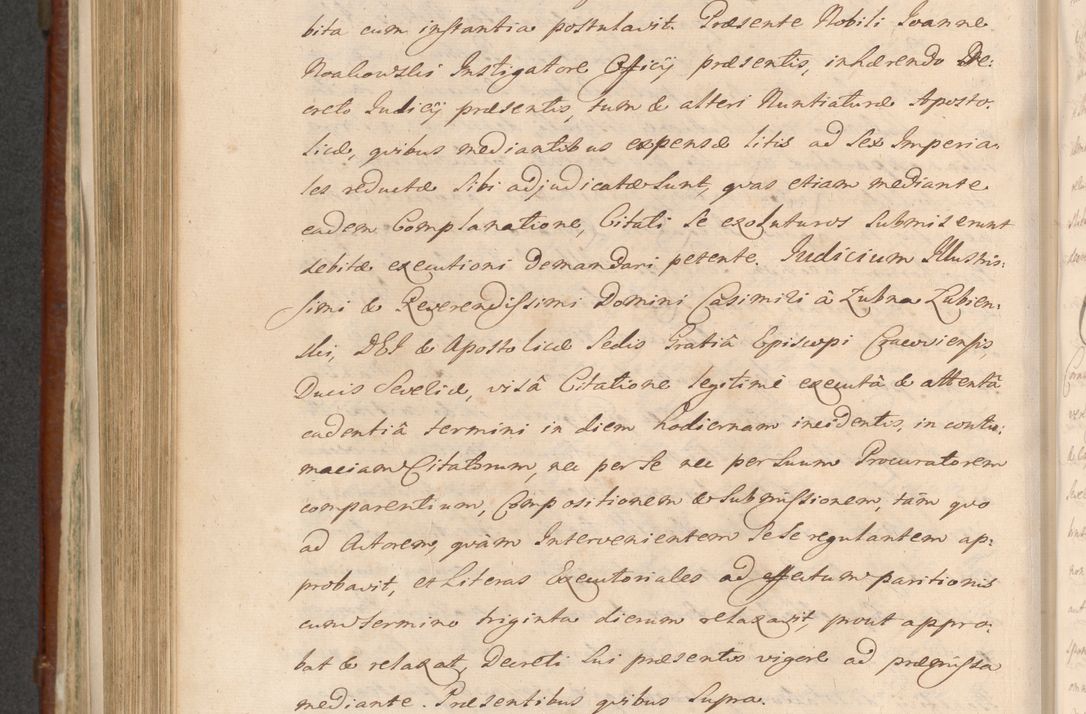 bita cum instantia postulavit. Præsente Nobili Ioanne
Noakowski Instigatore Officij præsentis, inhærendo De:
creto Iudicij præsentis, tum & alteri Nuntiaturæ Aposto.
licæ, quibus mediantibus expensæ litis ad sex Imperia.
les reductæ sibi adjudicatæ sunt, quas etiam mediante
eadem Complanatione, Citati se exoluturos submiserunt
debitæ executioni demandari petente. Iudicium Illustris:
simi & Reverendissimi Domini Casimiri â Łubna Łubien:
ski, DEI & Apostolicæ Sedis Gratiâ Episcopi Cracoviensis,
Ducis Severiæ, visâ Citatione legitimè executâ & attentâ
cadentiâ termini in diem hodiernam incidentis, in contu:
maciam Citatorum, nec per se nec per suum Procuratorem
comparentium, Compositionem & submissionem, tàm quo
ad Actorem, quàm Intervenientem sese regulantem ap:
probavit, et Literas Executoriales ad effectum paritionis
cum termino triginta dierum relaxavit, prout appro:
bat & relaxat, Decreti sui præsentis vigore ad præmissa
mediante. Præsentibus quibus supra.